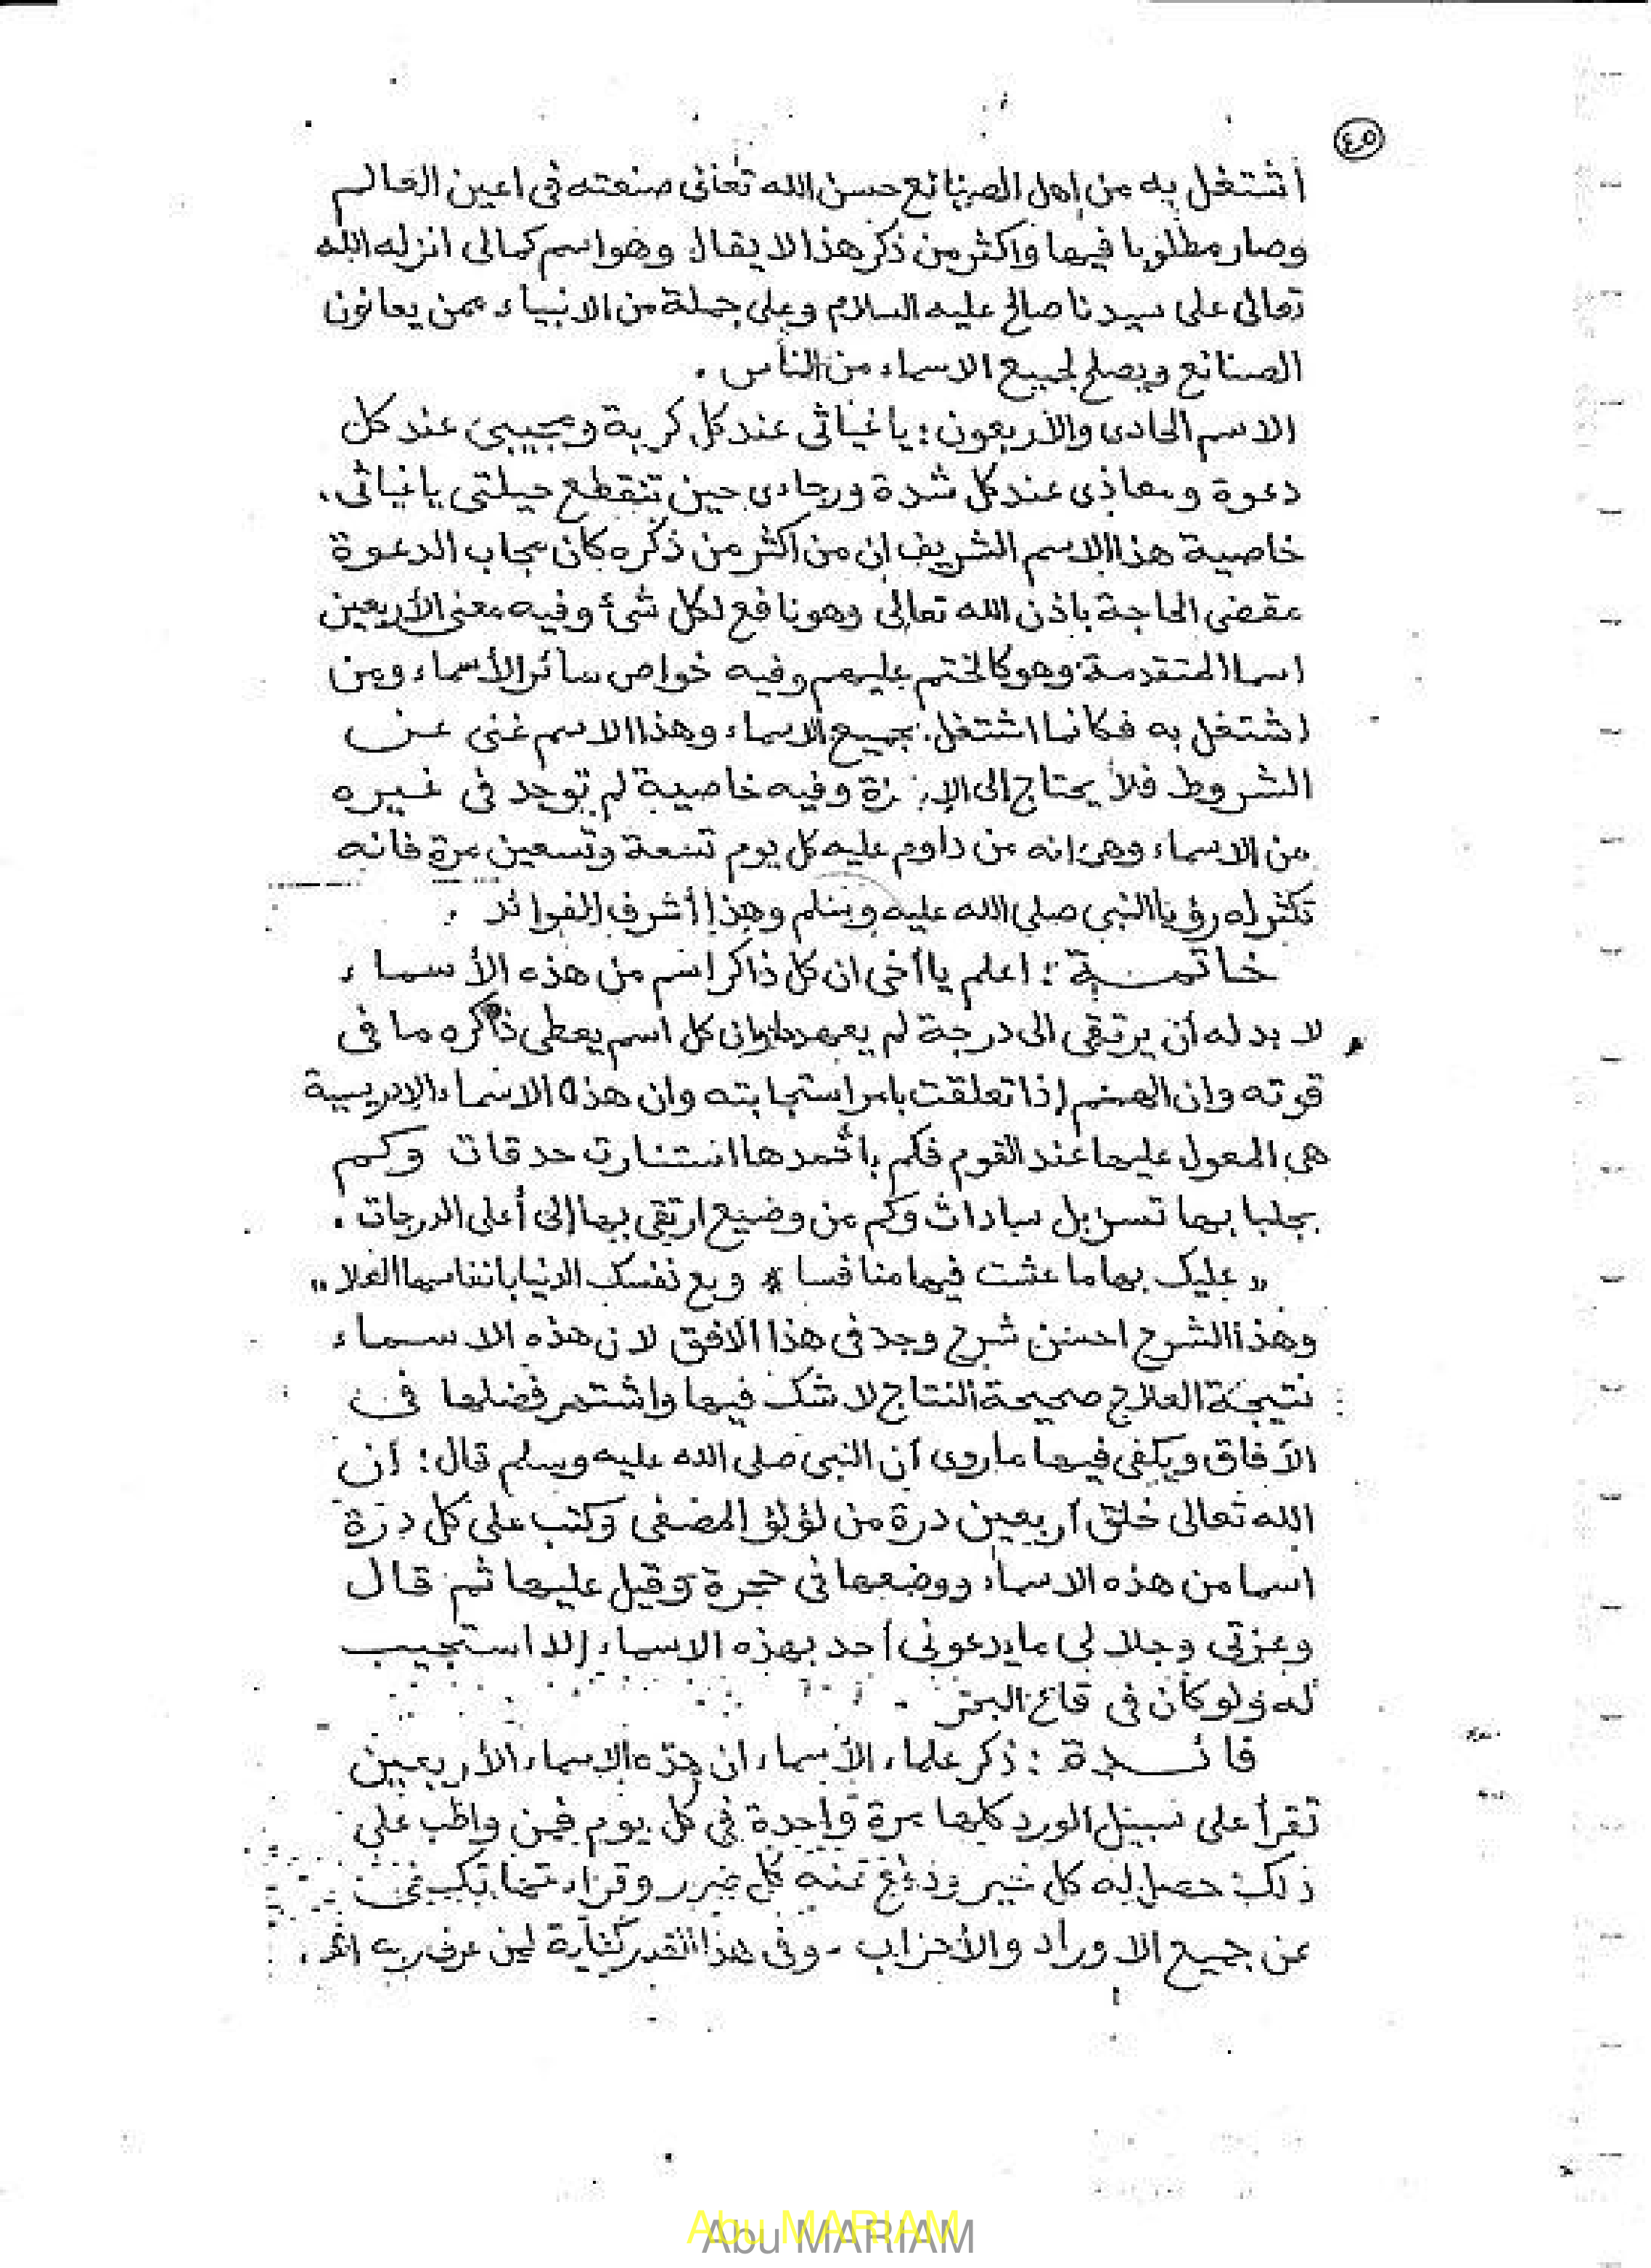 ٤٥
أشتغل به من اهل الصنائع حسن الله تعالى صنعته فى اعين العالم
وصار مطلوبا فيها واكثر من ذكر هذا لا يقال وهو اسم كمالى انزله الله
تعالى على سيدنا صالح عليه السلام وعلى جملة من الانبياء ممن يعانون
الصنائع ويصلح لجميع الاسماء من الناس .
الاسم الحادى والأربعون : ياغياثى عند كل كربة ومجيبى عند كل
دعوة ومعاذى عند كل شدة ورجاءى حين تنقطع حيلتى ياغياثى ..
خاصية هذا الاسم الشريف ان من اكثر من ذكره كان مجاب الدعوة
مقضى الحاجة باذن الله تعالى وهو نافع لكل شئ وفيه معنى الأربعين
اسما المتقدمة وهو كالختم عليهم وفيه خواص سائر الأسماء ومن
اشتغل به فكانما اشتغل بجميع الاسماء وهذا الاسم غنى عن
الشروط فلا يحتاج الى وفيه خاصية لم توجد فى غيره
من الاسماء وهى انه من داوم عليه كل يوم تسعة وتسعين مرة فانه
تكثر له رؤيا النبى صلى الله عليه وسلم وهذا أشرف الفوائد .
خاتمــة : اعلم ياأخى ان كل ذاكر اسم من هذه الأسماء
لا بد له أن يرتقى الى درجة لم يعهدها وان كل اسم يعطى ذاكره ما فى
قوته وان الهمم إذا تعلقت بامر استجابته وان هذه الاسماء الإدريسية
هى المعول عليها عند القوم فكم باثمدها استنارت حدقات وكم
بجلبابها تسربل سادات وكم من وضيع ارتقى بها إلى أعلى الدرجات .
" عليك بها ما عشت فيها منافسا * وبع نفسك الدنيا بانفاسها العلا "
وهذا الشرح احسن شرح وجد فى هذا الافق لان هذه الاسماء
نتيجة العلاج صحيحة النتاج لا شك فيها واشتهر فضلها فى
الآفاق ويكفى فيها ماروى أن النبى صلى الله عليه وسلم قال : إن
الله تعالى خلق أربعين درة من لؤلؤ المصفى وكتب على كل درة
اسما من هذه الاسماء ووضعها فى حجرة وقيل عليها ثم قال
وعزتى وجلالى ما يدعونى احد بهذه الاسماء إلا استجيب
له ولو كان فى قاع البحر .
فائــدة : ذكر علماء الأسماء ان هذه الاسماء الأربعين
تقرأ على سبيل الورد كلها مرة واحدة فى كل يوم فمن واظب على
ذلك حصل له كل خير ودفع عنه كل ضرر وقراءتها تكفى
عن جميع الاوراد والأحزاب - وفى هذا القدر كفاية لمن عرف ربه
Abu MARIAM
Abu MARIAM